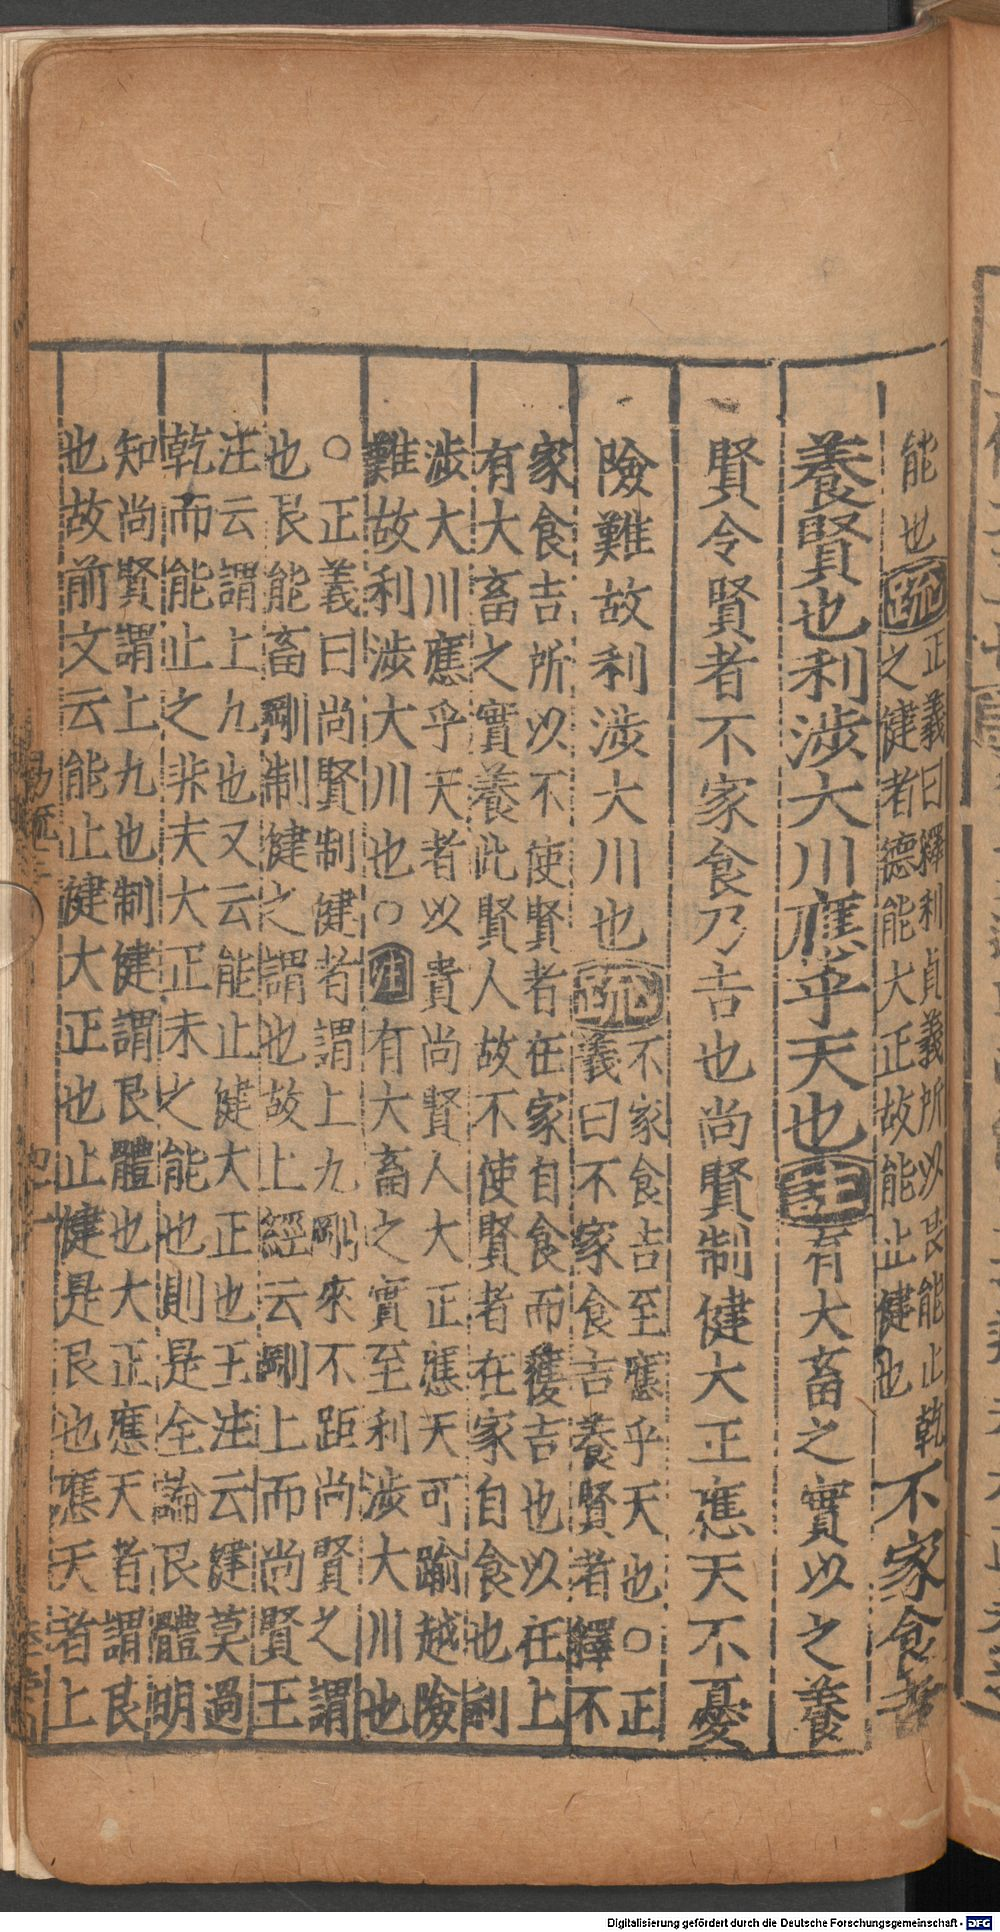 能也疏正義曰釋利貞義所以艮能止乾
之健者德能大正故能止健也
不家食吉
養賢也利涉大川應乎天也注有大畜之實以之養
賢令賢者不家食乃吉也尚賢制健大正應天不憂
險難故利涉大川也疏不家食吉至應乎天也○正
義曰不家食吉養賢者釋不
家食吉所以不使賢者在家自食而獲吉也以在上
有大畜之實養此賢人故不使賢者在家自食也利
涉大川應乎天者以貴尚賢人大正應天可踰越險
難故利涉大川也○注有大畜之實至利涉大川也
○正義曰尚賢制健者謂上九剛來不距尚賢之謂
也艮能畜剛制健之謂也故上經云剛上而尚賢王
注云謂上九也又云能止健大正也王注云健莫過
乾而能止之非夫大正未之能也則是全論艮體明
知尚賢謂上九也制健謂艮體也大正應天者謂艮
也故前文云能止健大正也止健是艮也應天者上
Digitalisierung gefördert durch die Deutsche Forschungsgemeinschaft - DFG